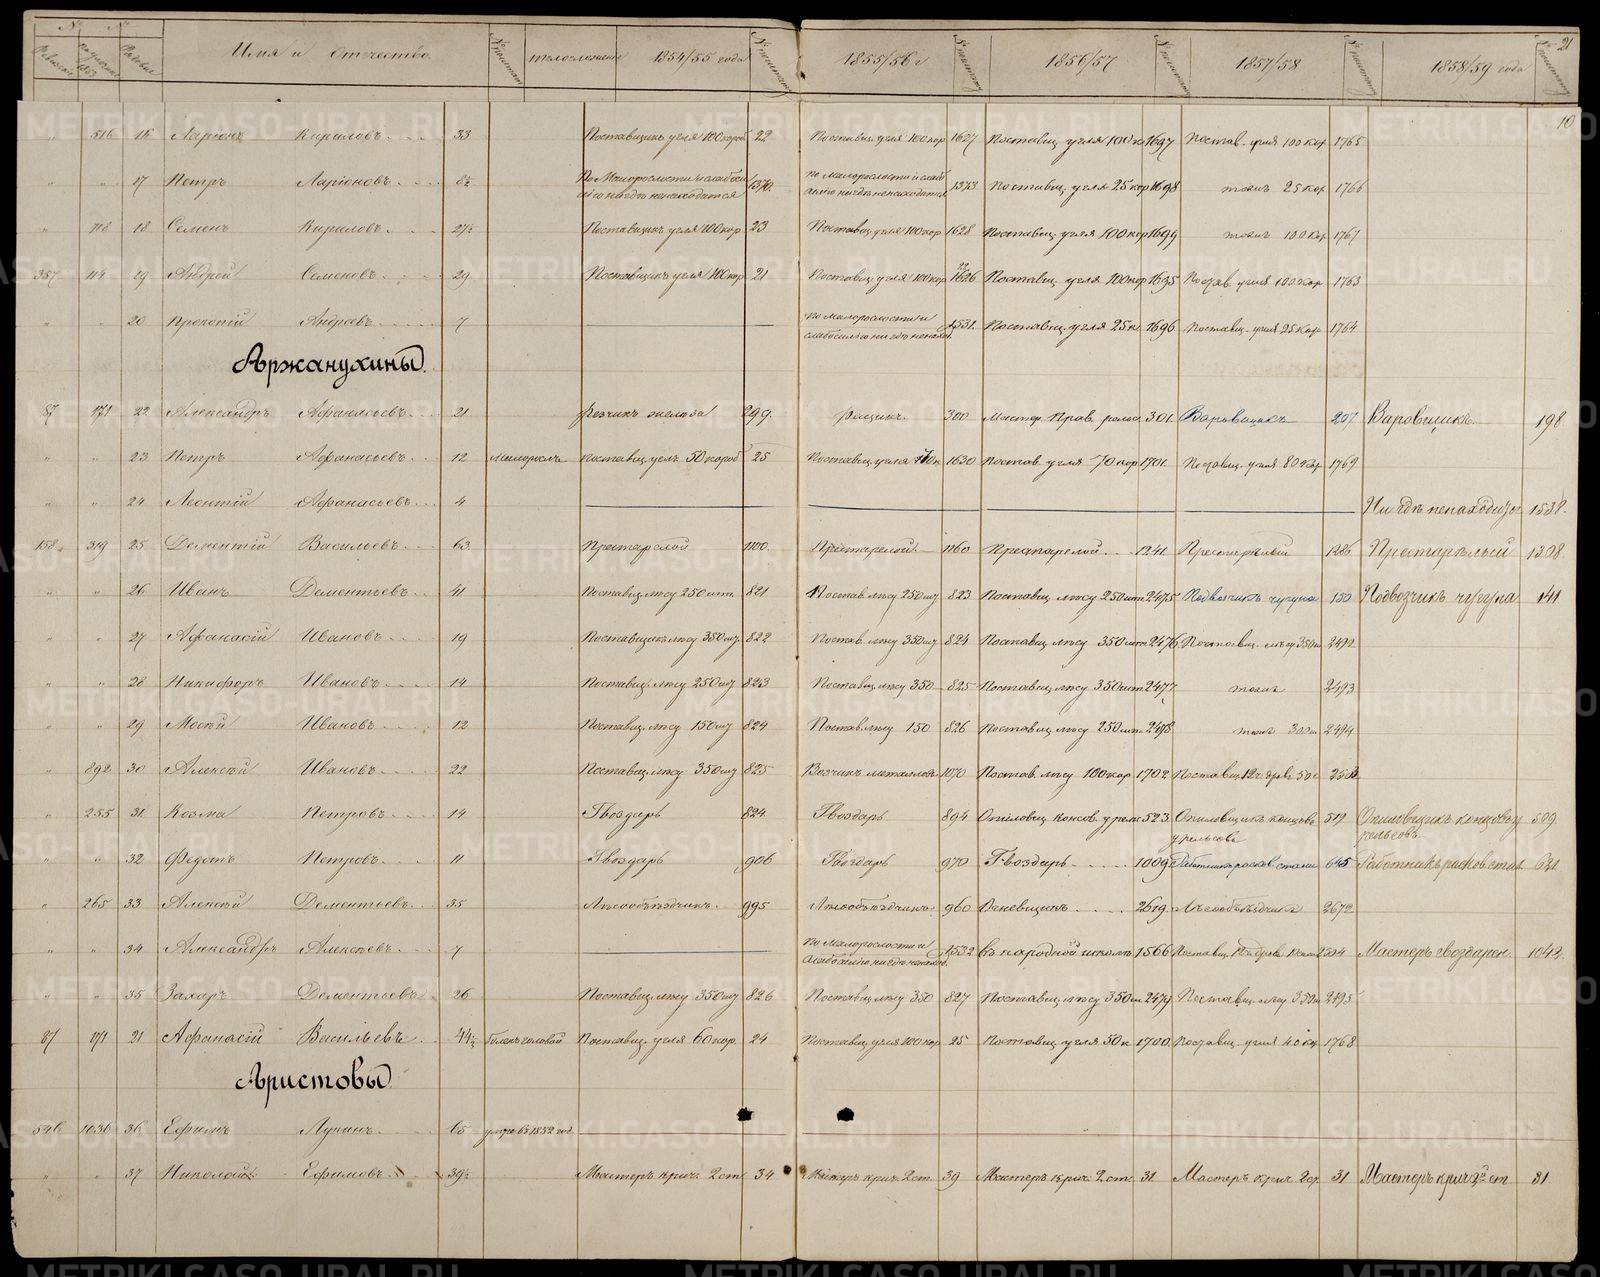 № №
Имя и отчество телосложение 1854/55 года 1855/56 г 1856/57 1857/58 1858/59 года 21
10
„ 516 16 Ларіонъ Кириловъ 33 Поставщикъ угля 100 короб 22 Поставщ. угля 100 кор 1627 Поставщ. угля 100 к 1697 Постав. угля 100 кор 1765
„ „ 17 Петръ Ларіоновъ 8½ По Малорослости и слабосилію нигдѣ ненаходится 1370 по малорослости и слабосилію нигдѣ ненаходится 1373 Поставщ. угля 25 кор 1698 тожъ 25 кор 1766
„ 118 18 Семенъ Кириловъ 27½ Поставщикъ угля 100 кор 23 Поставщ угля 100 кор 1628 Поставщ. угля 100 кор 1699 тожъ 100 кор 1767
387 114 19 Андрей Семеновъ 29 Поставщикъ угля 100 кор 21 Поставщ. угля 100 кор 1626 Поставщ. угля 100 кор 1695 Постав. угля 100 кор 1763
„ „ 20 Прокопій Андреевъ 7 по малорослости и слабосилію ни гдѣ ненаход. 1531 Поставщ. угля 25 к. 1696 Поставщ. угля 25 кор 1764
Аржанухины.
87 171 22 Александръ Афанасьевъ 21 Рѣзчикъ желѣза 299. 300 Мастер. Прав. 301. Варовщикъ 207 Варовщикъ 198
„ „ 23 Петръ Афанасьевъ 12 Малоросл. Поставщ. угл. 50 короб 25 Поставщ. угля 70 к 1630 Постав. угля 70 кор 1701. Поставщ. угля 80 кор 1769
„ „ 24 Леонтій Афанасьевъ 4 Ни гдѣ ненаходитс 1538.
158 319 25 Дементій Васильевъ 63. Престарелой 1100. Престарелой 1160 Престарелой 1241. Престарелый 1286 Престарѣлый 1308
„ „ 26 Иванъ Дементьевъ 41 Поставщ. лѣсу 250 шт. 821 Постав. лѣсу 250 шт 823 Поставщ. лѣсу 250 шт 2475 Подвозчикъ чугуна 150 Подвозчикъ чугуна 141
„ „ 27 Афанасій Ивановъ 19 Поставщикъ лѣсу 350 шт. 822 Постав. лѣсу 350 шт 824 Поставщ. лѣсу 350 шт 2476 Поставщ. лѣсу 350 ш 2492
„ „ 28 Никифоръ Ивановъ 14 Поставщ. лѣсу 250 шт 823 Поставщ. лѣсу 350 825 Поставщ. лѣсу 350 шт 2477 тожъ 2493
„ „ 29 Мосѣй Ивановъ 12 Поставщ. лѣсу 150 шт 824 Постав. лѣсу 150 826 Поставщ. лѣсу 250 шт. 2478 тожъ 300 ш 2494
„ 892 30 Алексѣй Ивановъ 22 Поставщ. лѣсу 350 шт 825 Возчикъ 1070 Постав. лѣсу 100 кор 1702
„ 255 31 Козма Петровъ 14 Гвоздарь 824. Гвоздарь 894 523 Опиловщикъ концовъ у рельсовъ 519 Опиловщикъ концовъ у рельсовъ 509.
„ „ 32 Федотъ Петровъ 11 Гвоздарь 906 Гвоздарь 970 Гвоздарь 1009 645 631
„ 265 33 Алексѣй Дементьевъ 35 Лѣсообъѣздчикъ. 995 Лѣсообъѣздчикъ. 960 Огневщикъ 2619. Лѣсообъѣздчикъ 2672
„ „ 34 Александръ Алексѣевъ 7 По малорослости и слабосилію нигдѣ ненаход. 1532 въ народной школѣ 1566 Мастеръ гвоздарен. 1042.
„ „ 35 Захаръ Дементьевъ 26 Поставщ. лѣсу 350 шт 826 Поставщ. лѣсу 350 827 Поставщ. лѣсу 350 ш. 2479 Поставщ. лѣсу 350 ш 2495
87 171 21 Афанасій Васильевъ 44½ Болѣнъ головой Поставщ. угля 60 кор. 24 Поставщ. угля 100 кор 25 Поставщ угля 50 к 1700. Поставщ. угля 40 кор 1768
Аристовы
546 1036 36 Ефимъ Лукинъ 65 умре въ 1852 год.
„ „ 37 Николай Ефимовъ 39½ Мастеръ крич. 2 ст 34 Мастеръ крич. 2 ст. 39 Мастеръ крич. 2 ст. 31 Мастеръ крич 2 ст 31 Мастеръ крич 2й ст 31.
METRIKI.GASO-URAL.RU